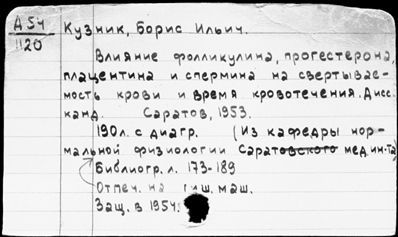 А 54
1120
Кузник, Борис Ильич.
Влияние фолликулина, прогестерона,
плацентина и спермина на свертывае-
мость крови и время кровотечения. Дисс.
канд. Саратов, 1953.
190л. с диагр. (Из кафедры нор-
мальной физиологии Саратовского мед.ин-та)
Библиогр. л. 173-189
Отпеч. на пиш. маш.
Защ. в 1954.